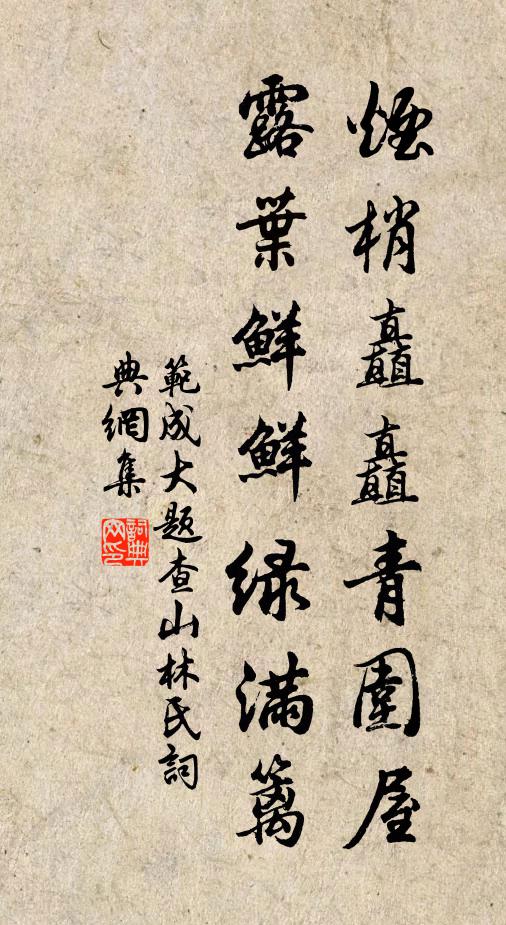 煙梢矗矗青圍屋
露葉鮮鮮綠滿籬
範成大題查山林氏詞
典網集
詞典網印